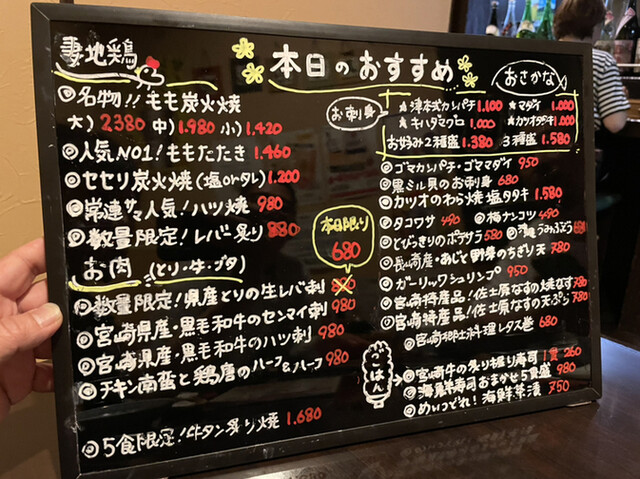 本日のおすすめ
妻地鶏
◎名物!!もも炭火焼
大)2380 中)1.980 小)1.420
◎人気NO1!ももたたき 1.460
◎セセリ炭火焼(塩orタレ) 1.200
◎常連サマ人気!ハツ焼 980
◎数量限定!レバー炙り 880
お肉 (とり・牛・ブタ)
本日限り
680
◎数量限定!県産とりの生レバ刺
◎宮崎県産・黒毛和牛のセンマイ刺 980
◎宮崎県産・黒毛和牛のハツ刺 980
◎チキン南蛮と鶏唐のハーフ&ハーフ 980
◎5食限定!牛タン炙り焼 1.680
おさかな
お刺身
★津本式カンパチ 1.100 ★マダイ 1.000
★キハダマグロ 1.000 ★カツオタタキ 1.000
お好み2種盛 1.380 3種盛 1.580
◎ゴマカンパチ・ゴママダイ 950
◎黒ミル貝のお刺身 680
◎カツオのわら焼塩タタキ 1.580
◎タコワサ 490 ◎梅ナンコツ 490
◎とびっきりのポテサラ 580 ◎沖縄うみぶどう 680
◎長崎産・あじと野菜のちぎり天 780
◎ガーリックシュリンプ 950
◎宮崎特産品!佐土原なすの焼なす 780
◎宮崎特産品!佐土原なすの天ぷら 780
◎宮崎郷土料理レタス巻 680
ごはん
◎宮崎牛の炙り握り寿司 1貫 260
◎海鮮寿司おまかせ5貫盛 980
◎めいつどれ!海鮮茶漬 750